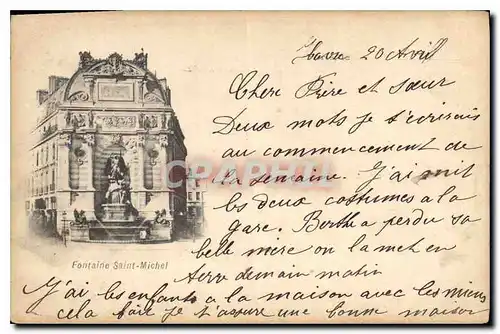 Havre 20 Avril
Cher Frère et sœur
Deux mots je t'écrirais
au commencement de
la semaine. J'ai mit
les deux costumes a la
gare. Berthe a perdu sa
belle mère on la met en
terre demain matin
J'ai les enfants a la maison avec les miens
cela fait je t'assure une bonne maison
Fontaine Saint-Michel
CPARAMA